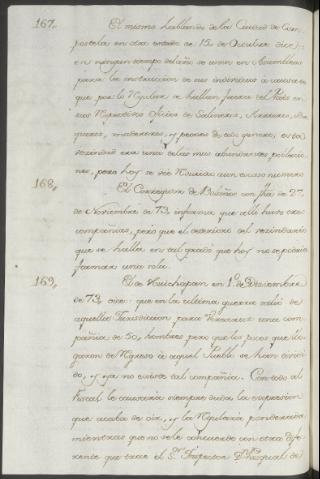 167. El mismo hablando de la Ciudad de Com-
postela en otra entrada de 15 de Octubre dice:
en ningun tiempo del año se unen en Asambleas
para la instruccion de sus individuos à causa de
que por lo regular se hallan fuera del Pais en
sus respectivos oficios de Salineros, Arrieros,
queros, matereros, y peones de otro genero, esta
vezindad era una de las mas abundantes poblacio-
nes, pero hoy se vée reducida à un escaso numero
168. El Corregidor de Bolaños con fha de 27
de Noviembre de 73, informa que alli hubo dos
compañias, pero que el deterioro del vezindario
que se halla en tal grado que hoy no se podria
formar una sola.
169. El de Huichapan en 1.º de Diciembre
de 73, dice: que en la ultima guerra salió de
aquella Jurisdiccion para Veracruz una com-
pañia de 50, hombres pero que los pocos que lle-
garon de regreso à aquel Pueblo se han
do, y ya no existe tal compañia. Con todo al
Fiscal le causaria siempre duda la expresion
que acaba de oir, y la regularia ponderada
mientras que no se le acuerde con otra dife-
rente que trae el S.or Inspector D.n Pasqual de